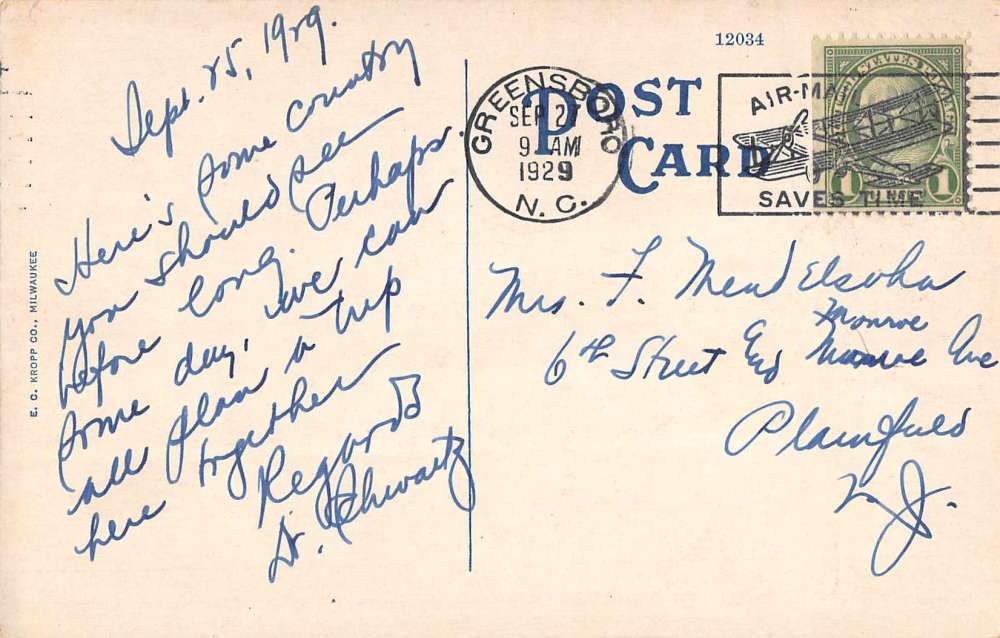 Sept. 25, 1929.
Here's some country
you should see
before long. Perhaps
some day, we can
all plan a trip
here together
Regards
Dr. Schwartz
E. C. KROPP CO., MILWAUKEE
12034
POST
CARD
GREENSBORO
SEP 27
9 AM
1929
N. C.
AIR-MAIL
SAVES TIME
1 1
Mrs. F. Mendelsohn
Monroe
6th Street And Monroe Ave
Plainfield
N.J.